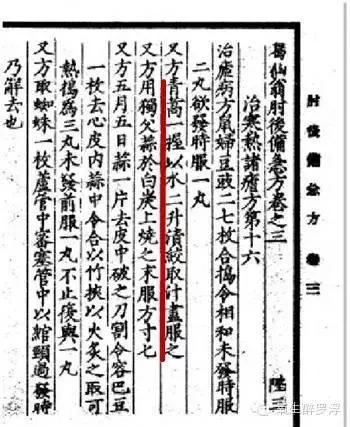 肘後備急方 卷三
葛仙翁肘後備急方卷之三 陞三
治寒熱諸瘧方第十六
治瘧病方鼠婦豆豉二七枚合搗令相和未發時服
二丸欲發時服一丸
又方青蒿一握以水二升漬絞取汁盡服之
又方用獨父蒜於白炭上燒之末服方寸匕
又方五月五日蒜一片去皮中破之刀割令容巴豆
一枚去心皮內蒜中令合以竹挾以火炙之取可
熱搗為三丸未發前服一丸不止復與一丸
又方取蜘蛛一枚蘆管中密塞管中以綰頸過發時
乃解去也